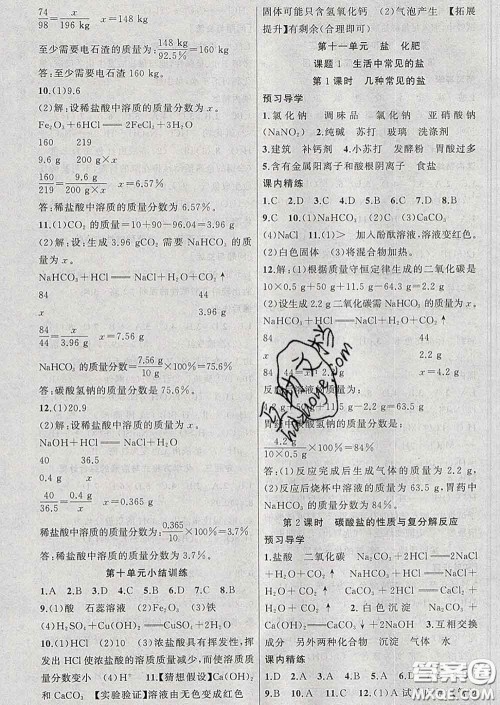 74/98 = x/196 kg  x=148 kg
至少需要电石渣的质量为148 kg/92.5%=160 kg
答:至少需要电石渣的质量为 160 kg。
10.(1)9.6
(2)解:设稀盐酸中溶质的质量分数为 x。
Fe₂O₃+6HCl══2FeCl₃+3H₂O
160 219
9.6 g 200 g·x
160/219=9.6 g/200 g·x  x=6.57%
答:稀盐酸中溶质的质量分数为 6.57%。
11.(1)CO₂ 的质量=10+90-96.04=3.96 g
(2)解:设生成 3.96 g CO₂ 需要 NaHCO₃ 的质量为 x。
NaHCO₃+HCl══NaCl+H₂O+CO₂↑
84 44
x 3.96 g
84/44=x/3.96 g  x=7.56 g
NaHCO₃ 的质量分数为7.56 g/10 g×100%=75.6%
答:碳酸氢钠的质量分数为 75.6%。
12.(1)20.9
(2)解:设稀盐酸中溶质的质量为 x。
NaOH+HCl══NaCl+H₂O
40 36.5
0.4 g x
40/36.5=0.4 g/x  x=0.365 g
稀盐酸中溶质的质量分数为0.365/10×100%=3.7%
答:稀盐酸中溶质的质量分数为 3.7%。
第十单元小结训练
1.A 2.B 3.C 4.A 5.C 6.D 7.D 8.D
9.(1)酸 石蕊溶液 (2)作干燥剂 (3)铁
(4)H₂SO₄+Cu(OH)₂══CuSO₄+2H₂O
10.(1)HCl (2)10 (3)浓盐酸具有挥发性,挥发出 HCl 使浓盐酸溶质质量减少,而使溶质质量分数减小 11.【猜想假设】(1)CaCl₂、Ca(OH)₂ 和 CaCO₃ 【实验验证】溶液由无色变成红色
固体可能只含氢氧化钙 (2)气泡产生 【拓展提升】有剩余(合理即可)
第十一单元 盐 化肥
课题1 生活中常见的盐
第1课时 几种常见的盐
预习导学
1.氯化钠 调味品 氯化钠 亚硝酸钠(NaNO₂) 2.纯碱 苏打 玻璃 洗涤剂
3.建筑 补钙剂 4.小苏打 发酵粉 胃酸过多
5.含有金属阳离子和酸根阴离子 食盐
课内精练
1.C 2.D 3.D 4.A 5.D 6.D 7.D 8.D
9.C 10.(1)NaHCO₃ (2)Na₂CO₃ (3)CaCO₃
(4)NaCl 11.(1)> 加入酚酞溶液,溶液变红色。
(2)白色固体 (3)将混合物加热。
12.解:(1)根据质量守恒定律生成的二氧化碳是10×0.5 g+11.4 g+51.3 g-65.5 g=2.2 g
(2)设生成 2.2 g 二氧化碳需 NaHCO₃ 的质量为 x。
NaHCO₃+HCl══NaCl+H₂O+CO₂↑
84 44
x 2.2 g
84/44=x/2.2 g
答:(1)反应完成后生成气体的质量为 2.2 g。
(2)反应后烧杯中溶液的质量为 63.5 g,胃药中NaHCO₃ 的质量分数为 84%。
第2课时 碳酸盐的性质与复分解反应
预习导学
1.盐酸 二氧化碳 Na₂CO₃+2HCl══2NaCl+H₂O+CO₂↑ NaHCO₃+HCl══NaCl+H₂O+CO₂↑ 2.白色沉淀
3.互相交换成分 另外两种化合物 沉淀 气体 水
课内精练
互助文档
hazhoye.com
答案圈
MXQE.COM